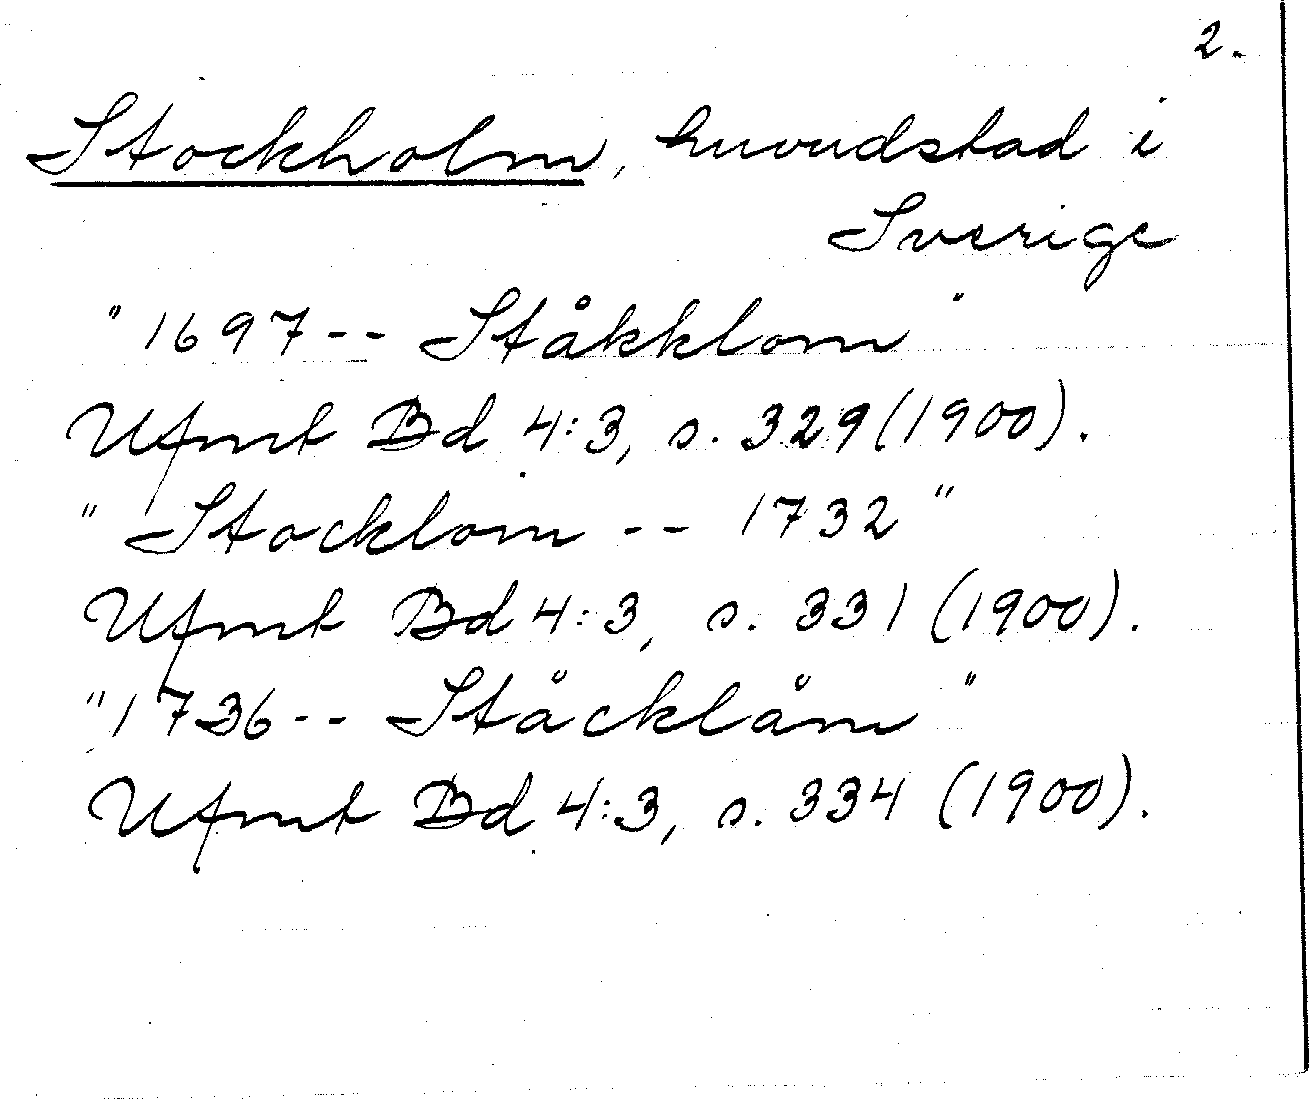 2.
Stockholm, huvudstad i
Sverige
"1697-- Ståkklom"
Ufmt Bd 4:3, s. 329 (1900).
"Stocklom -- 1732"
Ufmt Bd 4:3, s. 331 (1900).
"1736-- Ståcklåm"
Ufmt Bd 4:3, s. 334 (1900).